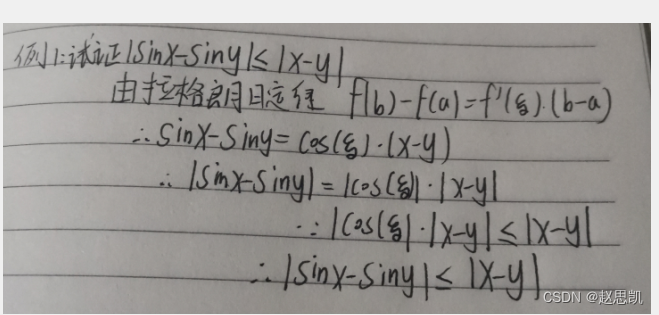 例1:试证|sinx-siny|≤|x-y|
由拉格朗日定理 f(b)-f(a)=f'(ξ)·(b-a)
∴sinx-siny=cos(ξ)·(x-y)
∴|sinx-siny|=|cos(ξ)|·|x-y|
∵|cos(ξ)|·|x-y|≤|x-y|
∴|sinx-siny|≤|x-y|
CSDN @赵思凯